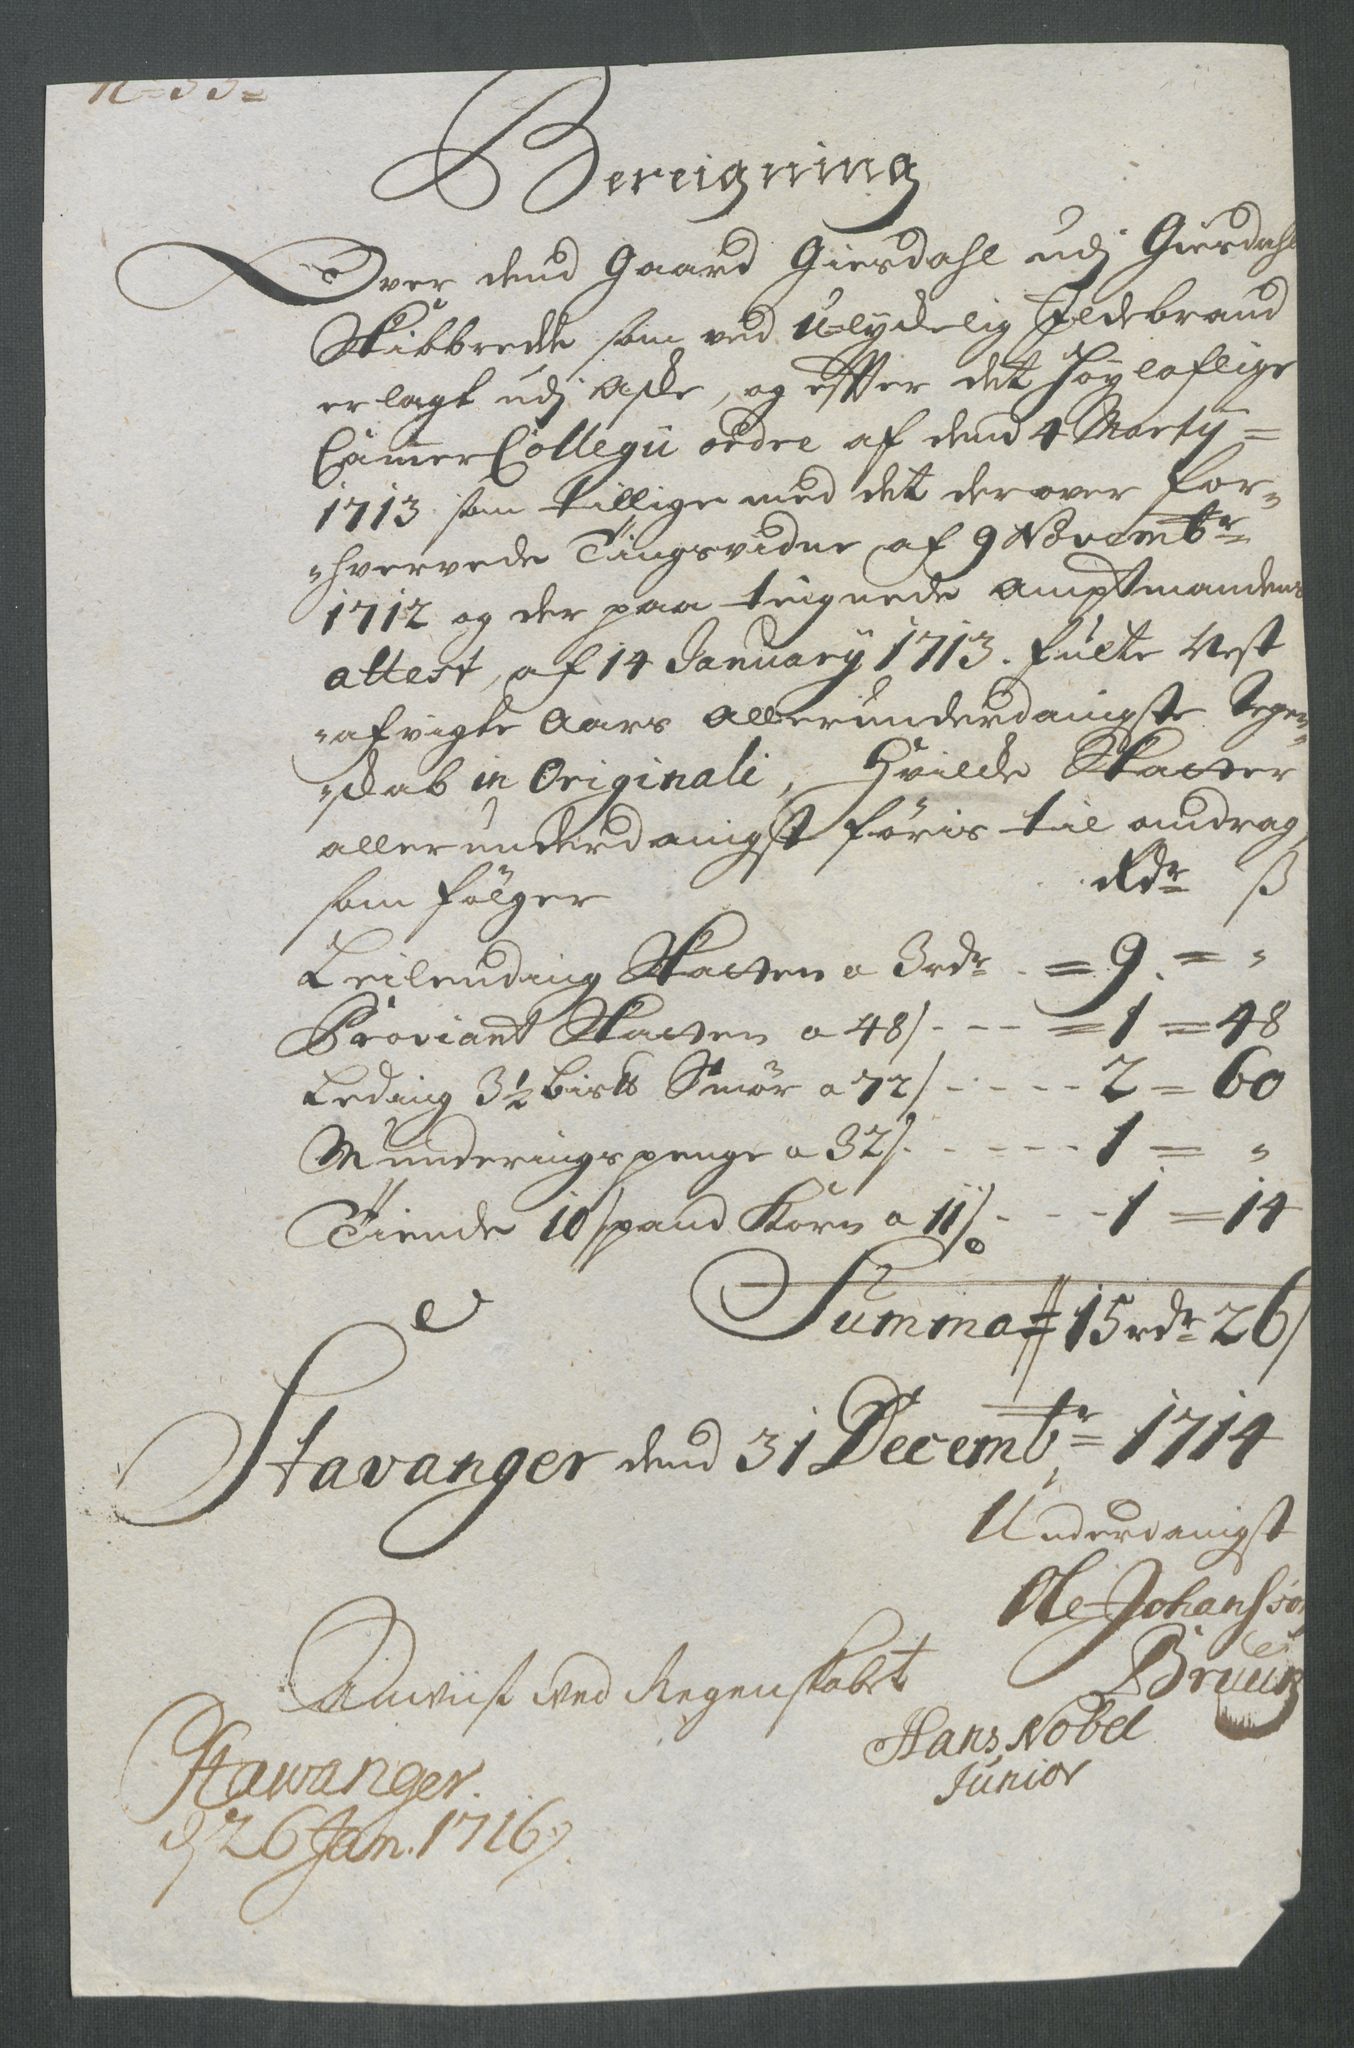 N=33=
Bereigning
Over dend Gaard Giesdahl udj Giesdahl
Skibbrede som ved Ulydelig Ildebrand
er lagt udj Aske, og efter det Høyloflige
Camer Collegii ordre af dend 4 Martij =
1713 som tillige med det derover for-
hvervede Tingsvidne af 9 Novembr
1712 og der paa teignede Amptmandens
attest, af 14 January 1713. fulte Nest
afvigte Aars Allerunderdanigste Regen-
skab in Originali, Hvilcke Skatter
allerunderdanigst føris til omdrag,
som følger Rdr ß
Leilending Skatten a 3 rdr . = 9. = "
Proviant Skatten a 48 ß - - - = 1 = 48
Leding 3½ bis℔ Smør a 72 ß - - - - - 2 = 60
Munderings penge a 32 ß - - - - - 1 = "
Tiende 10 spand Korn a 11 ß - - - - 1 = 14
Summa 15 rdr 26 ß
Stavanger dend 31 Decembr = 1714
Underdanigst
Ole Johansson
Bruun
Anviist ved Regenskabet
Hans Nobel
Junior
Stawanger.
d 26 Jan. 1716